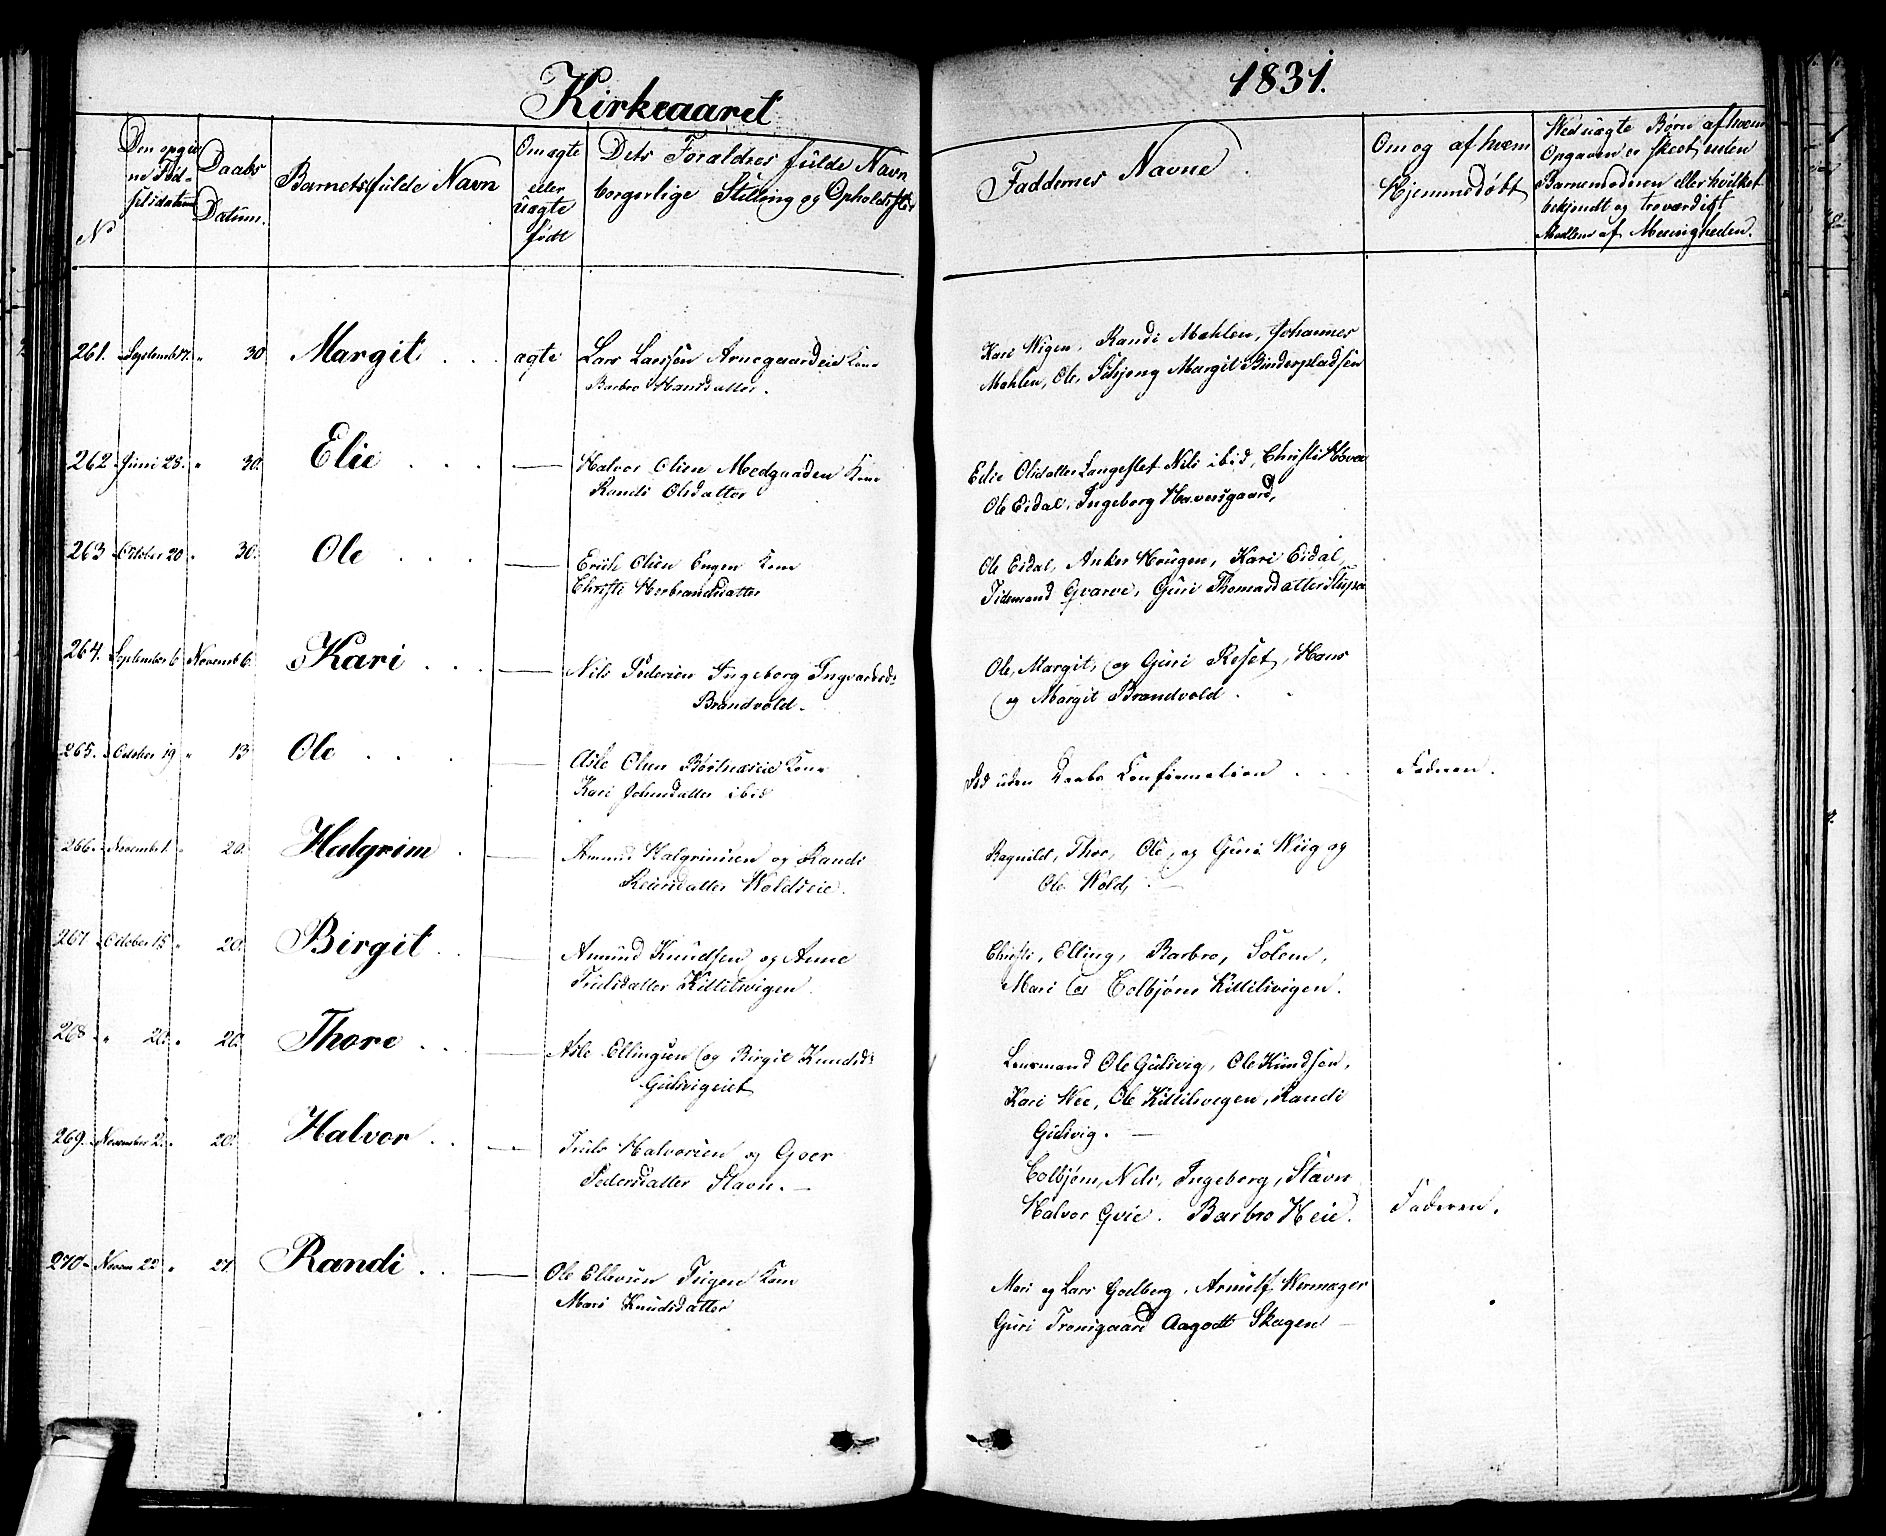 Kirkeaaret
1831.
No
Den opgivne Fødselsdatum
Daabs Datum.
Barnets fulde Navn
Om ægte eller uægte født
Dets Forældres fulde Navn borgerlige Stilling og Opholdssted
Faddernes Navne.
Om og af hvem Hjemmedøbt
Ved uægte Børn af hvem Opgaven er skeet, enden Barnemoderen eller hvilket bekjendt og troværdigt Medlem af Menigheden.
261. Septemb 17. " 30 Margit . . . ægte Lars Larsen Arnegaardeie Kone
Barbro Hansdatter.
Kari Wigen, Randi Mehlen, Johannes
Mehlen, Ole Margit Binderpladsen
262 Juni 25. " 30. Elie . . . — Halvor Olsen Medgaarden Kone
Randi Olsdatter
Elie Olsdatter Langeslet Nils ibid, Christi Hove
Ole Eidal, Ingeborg Haversgaard,
263 October 20 " 30. Ole . . . — Erich Olsen Engen Kone
Christi Herbrandsdatter
Ole Eidal, Anker Hougen, Kari Eidal,
Tidemand Qvarve, Guri Thomasdatter
264. September 6 Novemb 6. Kari . . . — Nils Pedersen Ingeborg Ingvardsd:
Brandvold.
Ole, Margit, og Guri Reset, Hans
og Margit Brandvold.
265. October 19 " 13 Ole . . . — Asle Olsen Børtneseie Kone
Kari Johnsdatter ibid
Død uden Daabs Confirmation . . . Faderen.
266. Novemb 1. " 20. Halgrim . — Amund Halgrimsen og Randi
Reiersdatter Woldseie.
Ragnild, Thor, Ole, og Guri Wiig og
Ole Wold,
267 October 15 " 20. Birgit . . — Amund Knudsen og Anne
Trulsdatter Killilsvigen.
Christi, Elling, Barbro, Solem,
Mari og Colbjørn Killilsvigen.
268 " 20. " 20. Thore . . — Asle Ellingsen og Birgit Knudsd:
Gulsvigeiet
Lensmand Ole Gulsvig, Ole Knudsen,
Kari Wee, Ole Killilsvegen, Randi
Gulsvig. —
269. November 2. " 20. Halvor . . — Truls Halvorsen og Goer
Pedersdatter Stavn. —
Colbjørn, Nils, Ingeborg, Stavn
Halvor Qvie. Barbro Heie. Faderen.
270 Novem 22 " 27. Randi . . — Ole Ellevsen Trigen Kone
Mari Knudsdatter
Mari og Lars Golberg, Arnulf Wermager
Guri Tronsgaard Aagodt Skagen —